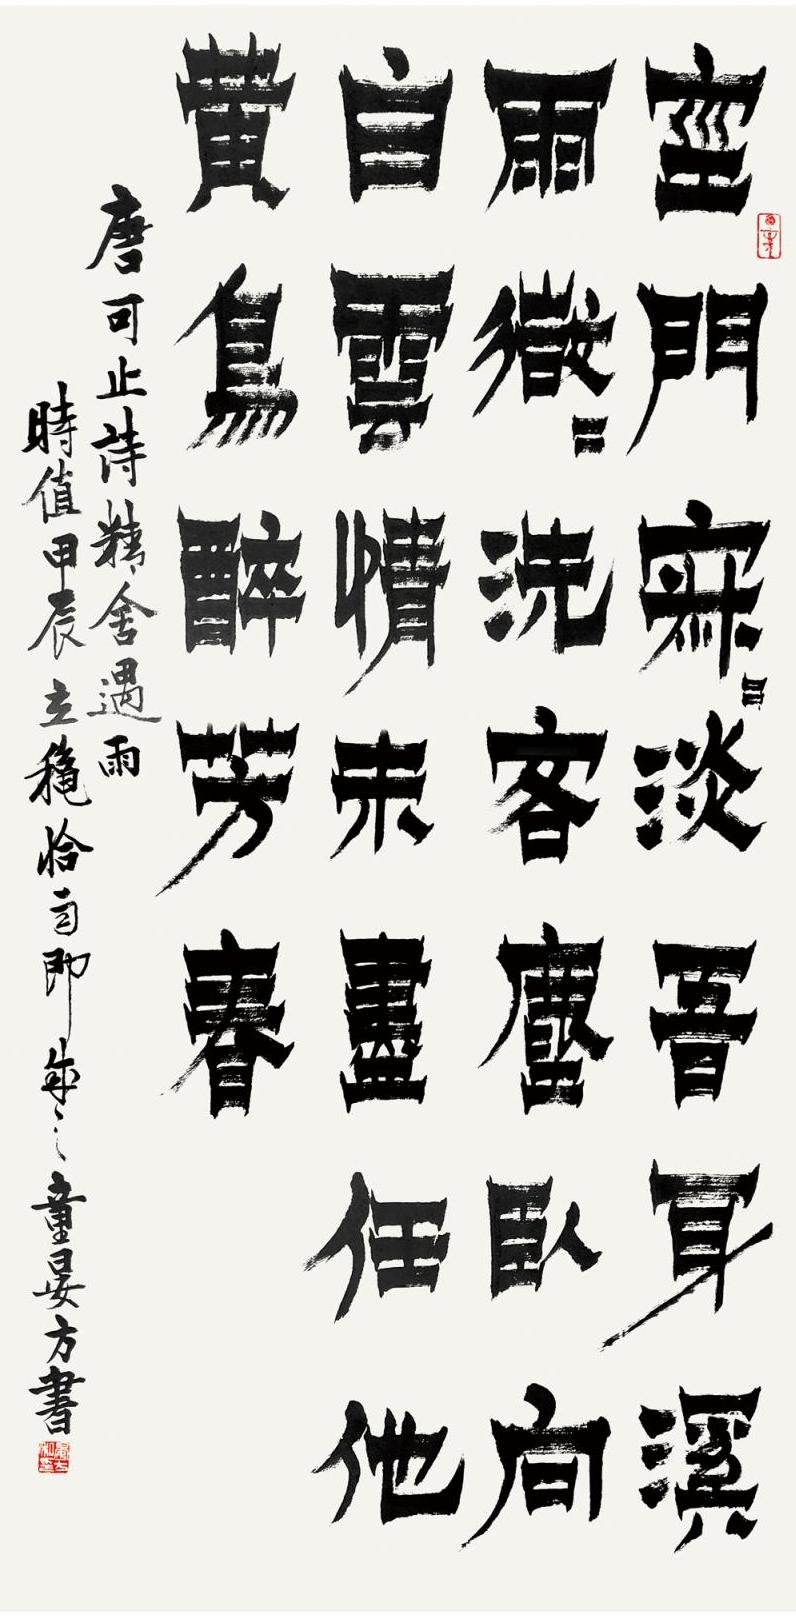 空門寂〻淡吾身溪
雨微〻洗客塵臥向
白雲情未盡任他
黃鳥醉芳春
唐可止詩精舍遇雨
時值甲辰立穐恰即成之童晏方書